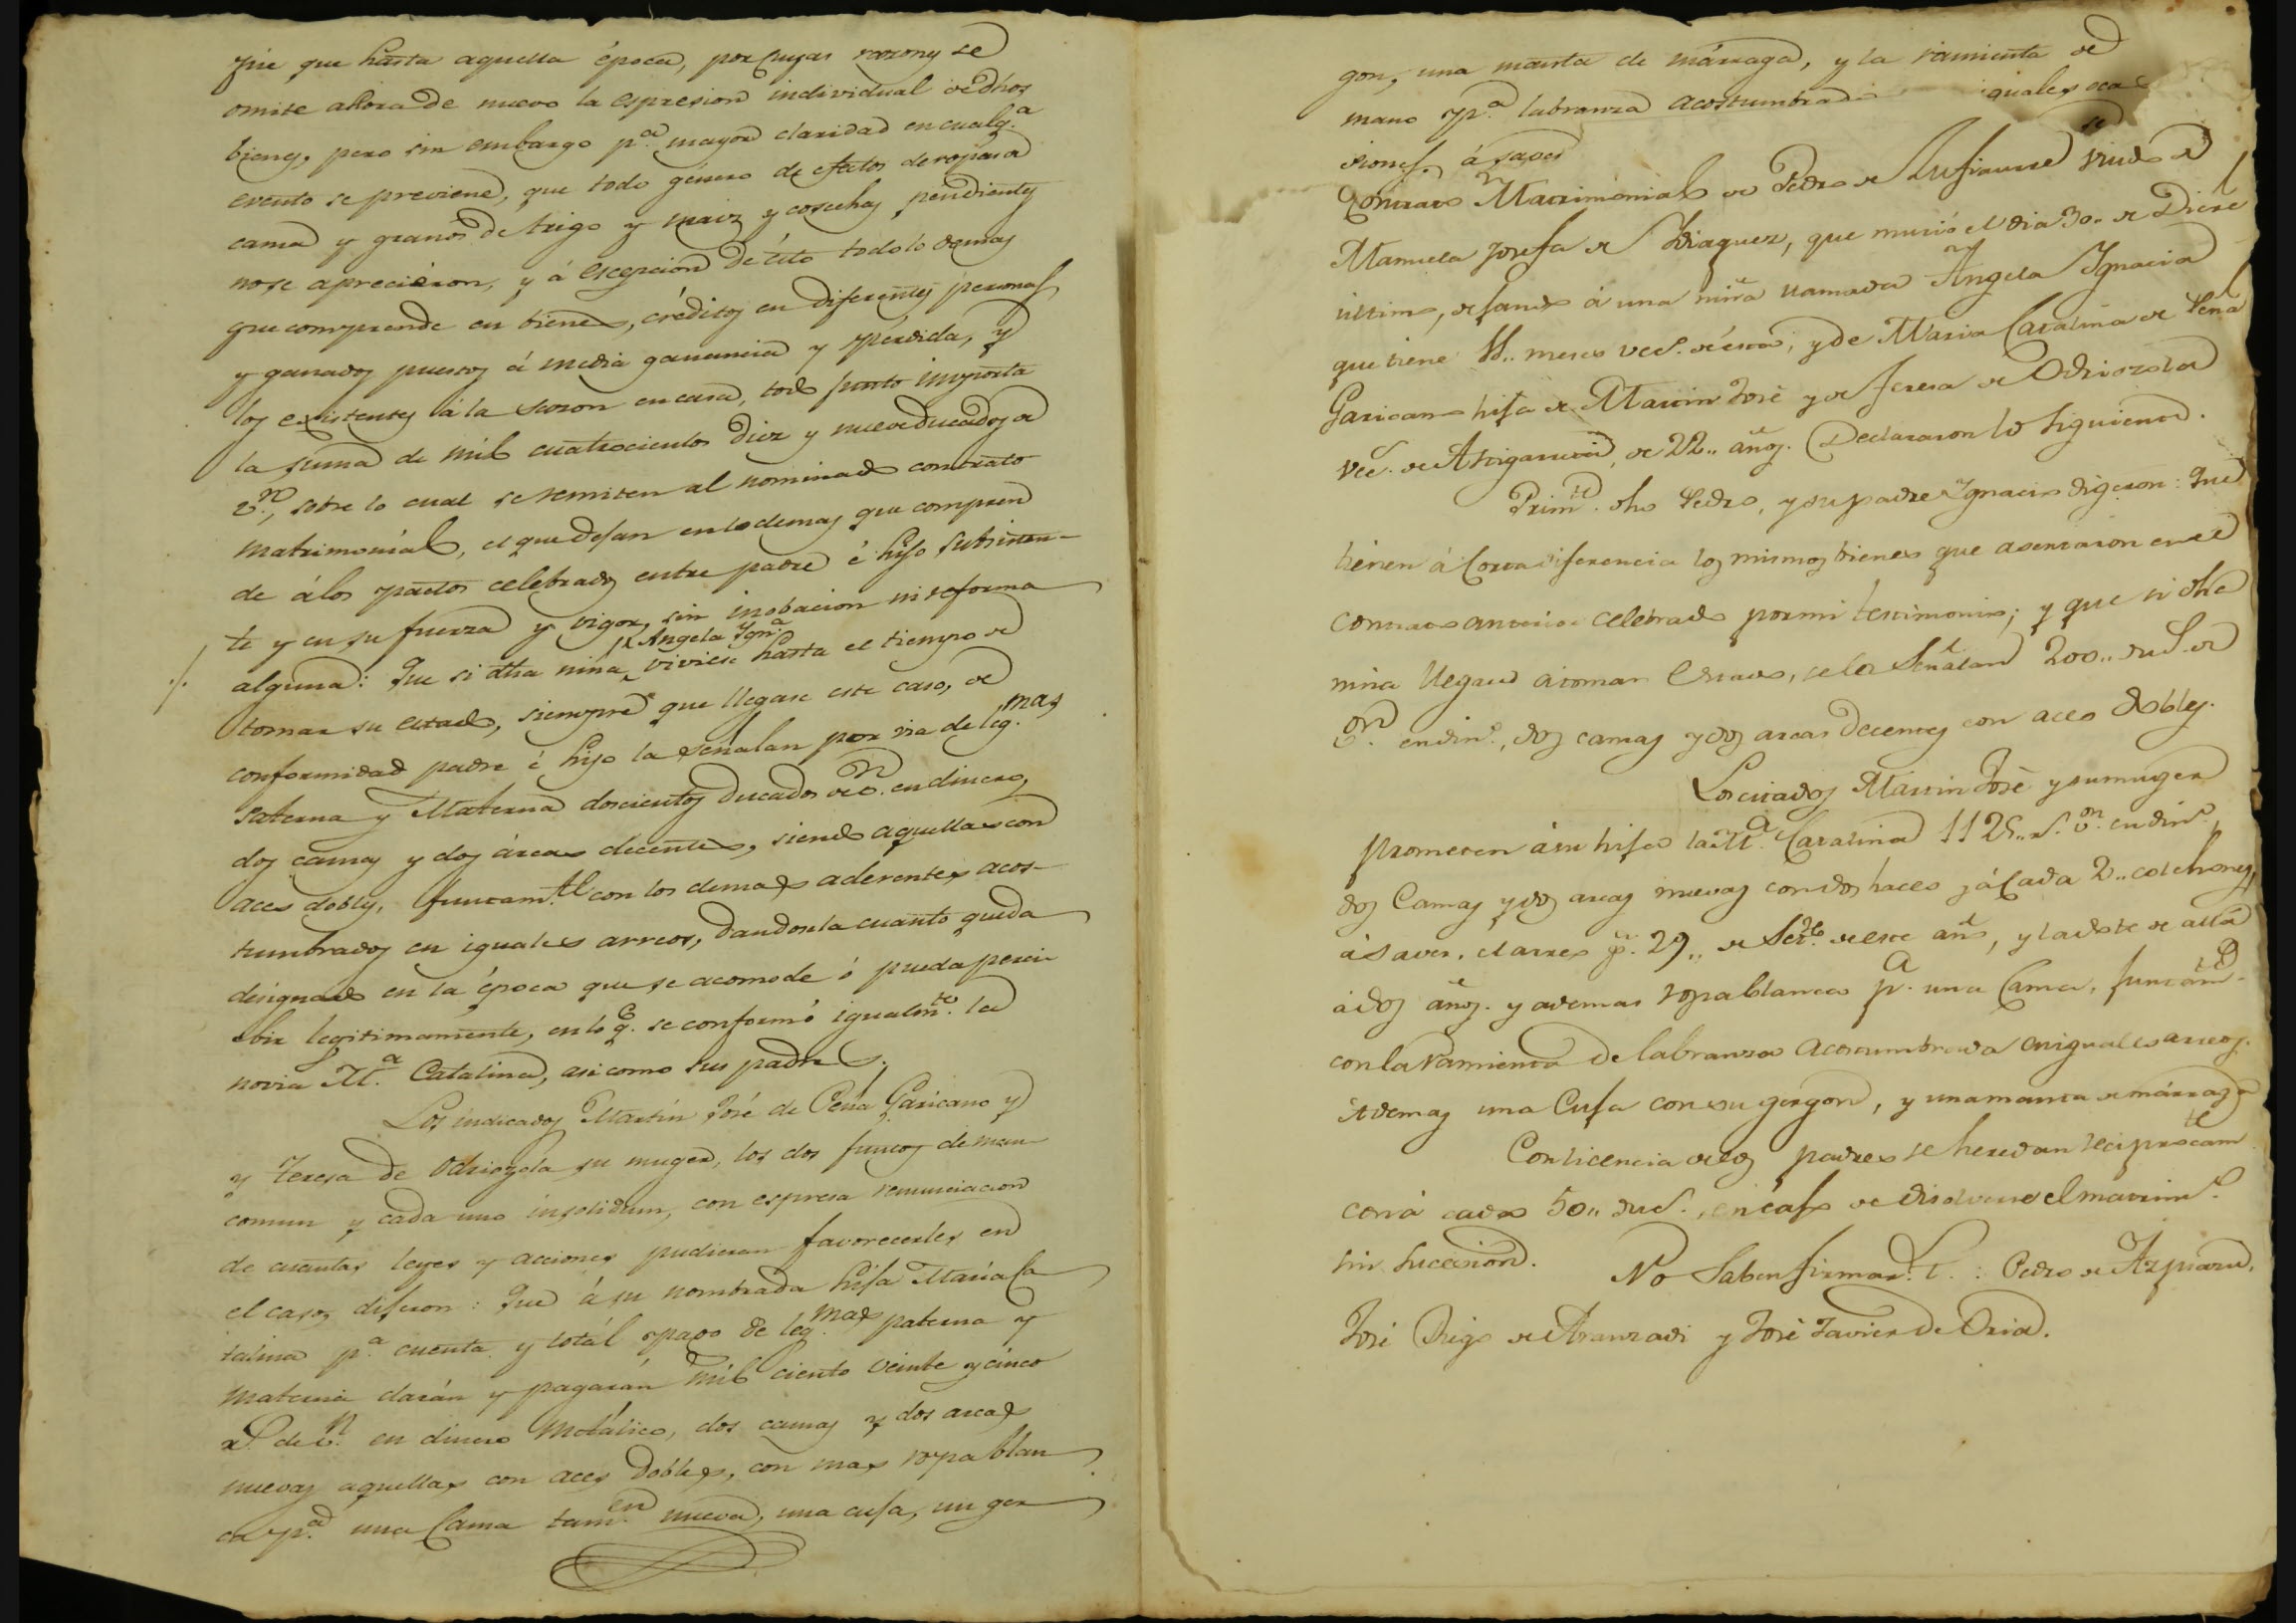 que hasta aquella época, por cuyas razones se
omite ahora de nuevo la espresion individual de dhos
bienes, pero sin embargo p.ª mayor claridad en cualq.ª
evento se previene, que todo género de efectos de ropas de
cama y granos de trigo y maiz y cosechas pendientes
no se apreciaron, y á escepcion de esto todo lo demas
que comprende en bienes, créditos en diferentes personas
y ganados puestos á media ganancia y pérdida, y
los existentes á la sazon en casa, todo junto importa
la suma de mil cuatrocientos diez y nueve ducados de
v.n, sobre lo cual se remiten al nominado contrato
matrimonial, el que dejan en lo demas que compren
de á los pactos celebrados entre padre é hijo subsisten-
te y en su fuerza y vigor, sin inobacion ni reforma
alguna: Que si dha niña Angela Ygn.ª viviese hasta el tiempo de
tomar su estado, siempre que llegase este caso, de
conformidad padre é hijo la señalan por via de leg.mas
Paterna y Materna doscientos ducados de v.n en dinero,
dos camas y dos árcas decentes, siendo aquellas con
aces dobles, juntam.te con los demas aderentes acos-
tumbrados en iguales arreos, dandola cuanto queda
designado en la época que se acomode ó pueda perci-
bir legitimamente, en lo q.e se conformó igualm.te la
novia M.ª Catalina, asi como sus padres.
Los indicados Martín José de Peña Garicano y
y Teresa de Odriozola su muger, los dos juntos de man-
comun y cada uno insolidum, con espresa renunciacion
de cuantas leyes y acciones pudieran favorecerles en
el caso, dijeron: Que á su nombrada hija María Ca
talina p.ª cuenta y totál pago de leg.mas paterna y
materna darán y pagarán mil ciento veinte y cinco
r.s de v.n en dinero metálico, dos camas y dos arcas
nuevas aquellas con aces dobles, con mas ropa blan
ca p.ª una Cama tam.en nueva, una cuja, un ger
gon, una manta de márraga, y la ramienta de
mano p.ª labranza acostumbrada iguales oca
siones, á saver
Contrato Matrimonial de Pedro de viudo de
Manuela Josefa de Ydiaquez, que murió el dia 30.. de Dicre
último, dejando á una niña llamada Angela Ygnacia
que tiene 11.. meses vec.s de esta; y de Maria Catalina de Peña
Garicano hija de Martin José y de Teresa de Odriozola
vec.s de Astigarreta, de 22.. años. Declararon lo siguiente.
Prim.te dho Pedro, y su padre Ygnacio digeron: Que
tienen á corta diferencia los mismos bienes que asentaron en el
contrato anterior celebrado por mi testimonio; y que si dha
niña llegase á tomar estado, se la señalan 200.. duc.s de
v.n en din.o, dos camas y dos arcas decentes con aces dobles.
Los citados Martin José y su muger
prometen á su hija la M.ª Catalina 1125.. r.s v.n en din.o,
dos Camas y dos arcas nuevas con dos haces, y á cada 2.. colchones,
á saver, el arreo p.ª 29.. de Set.e de este año, y la dote de allá
á dos años. y ademas ropa blanca p.ª una Cama, juntam.te
con la ramienta de labranza acostumbrada en iguales arreos.
Ademas una Cuja con su gergon, y una manta de márraga
Con licencia de los padres se heredan reciprocam.te
con á cada 50.. duc.s, en caso de disolverse el matrim.o
sin succesion. No saben firmar. T.: Pedro de Azpiazu,
José Yñigo de Aranzadi y José Javier de Oria.